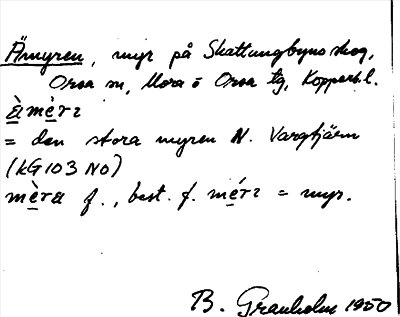 Åmyren, myr på Skattungbyns skog,
Orsa sn, Mora o Orsa tg, Kopparb. l.
= den stora myren N. Vargtjärn
(kG 103 NO)
f., best. f. = myr.
B. Granholm 1950